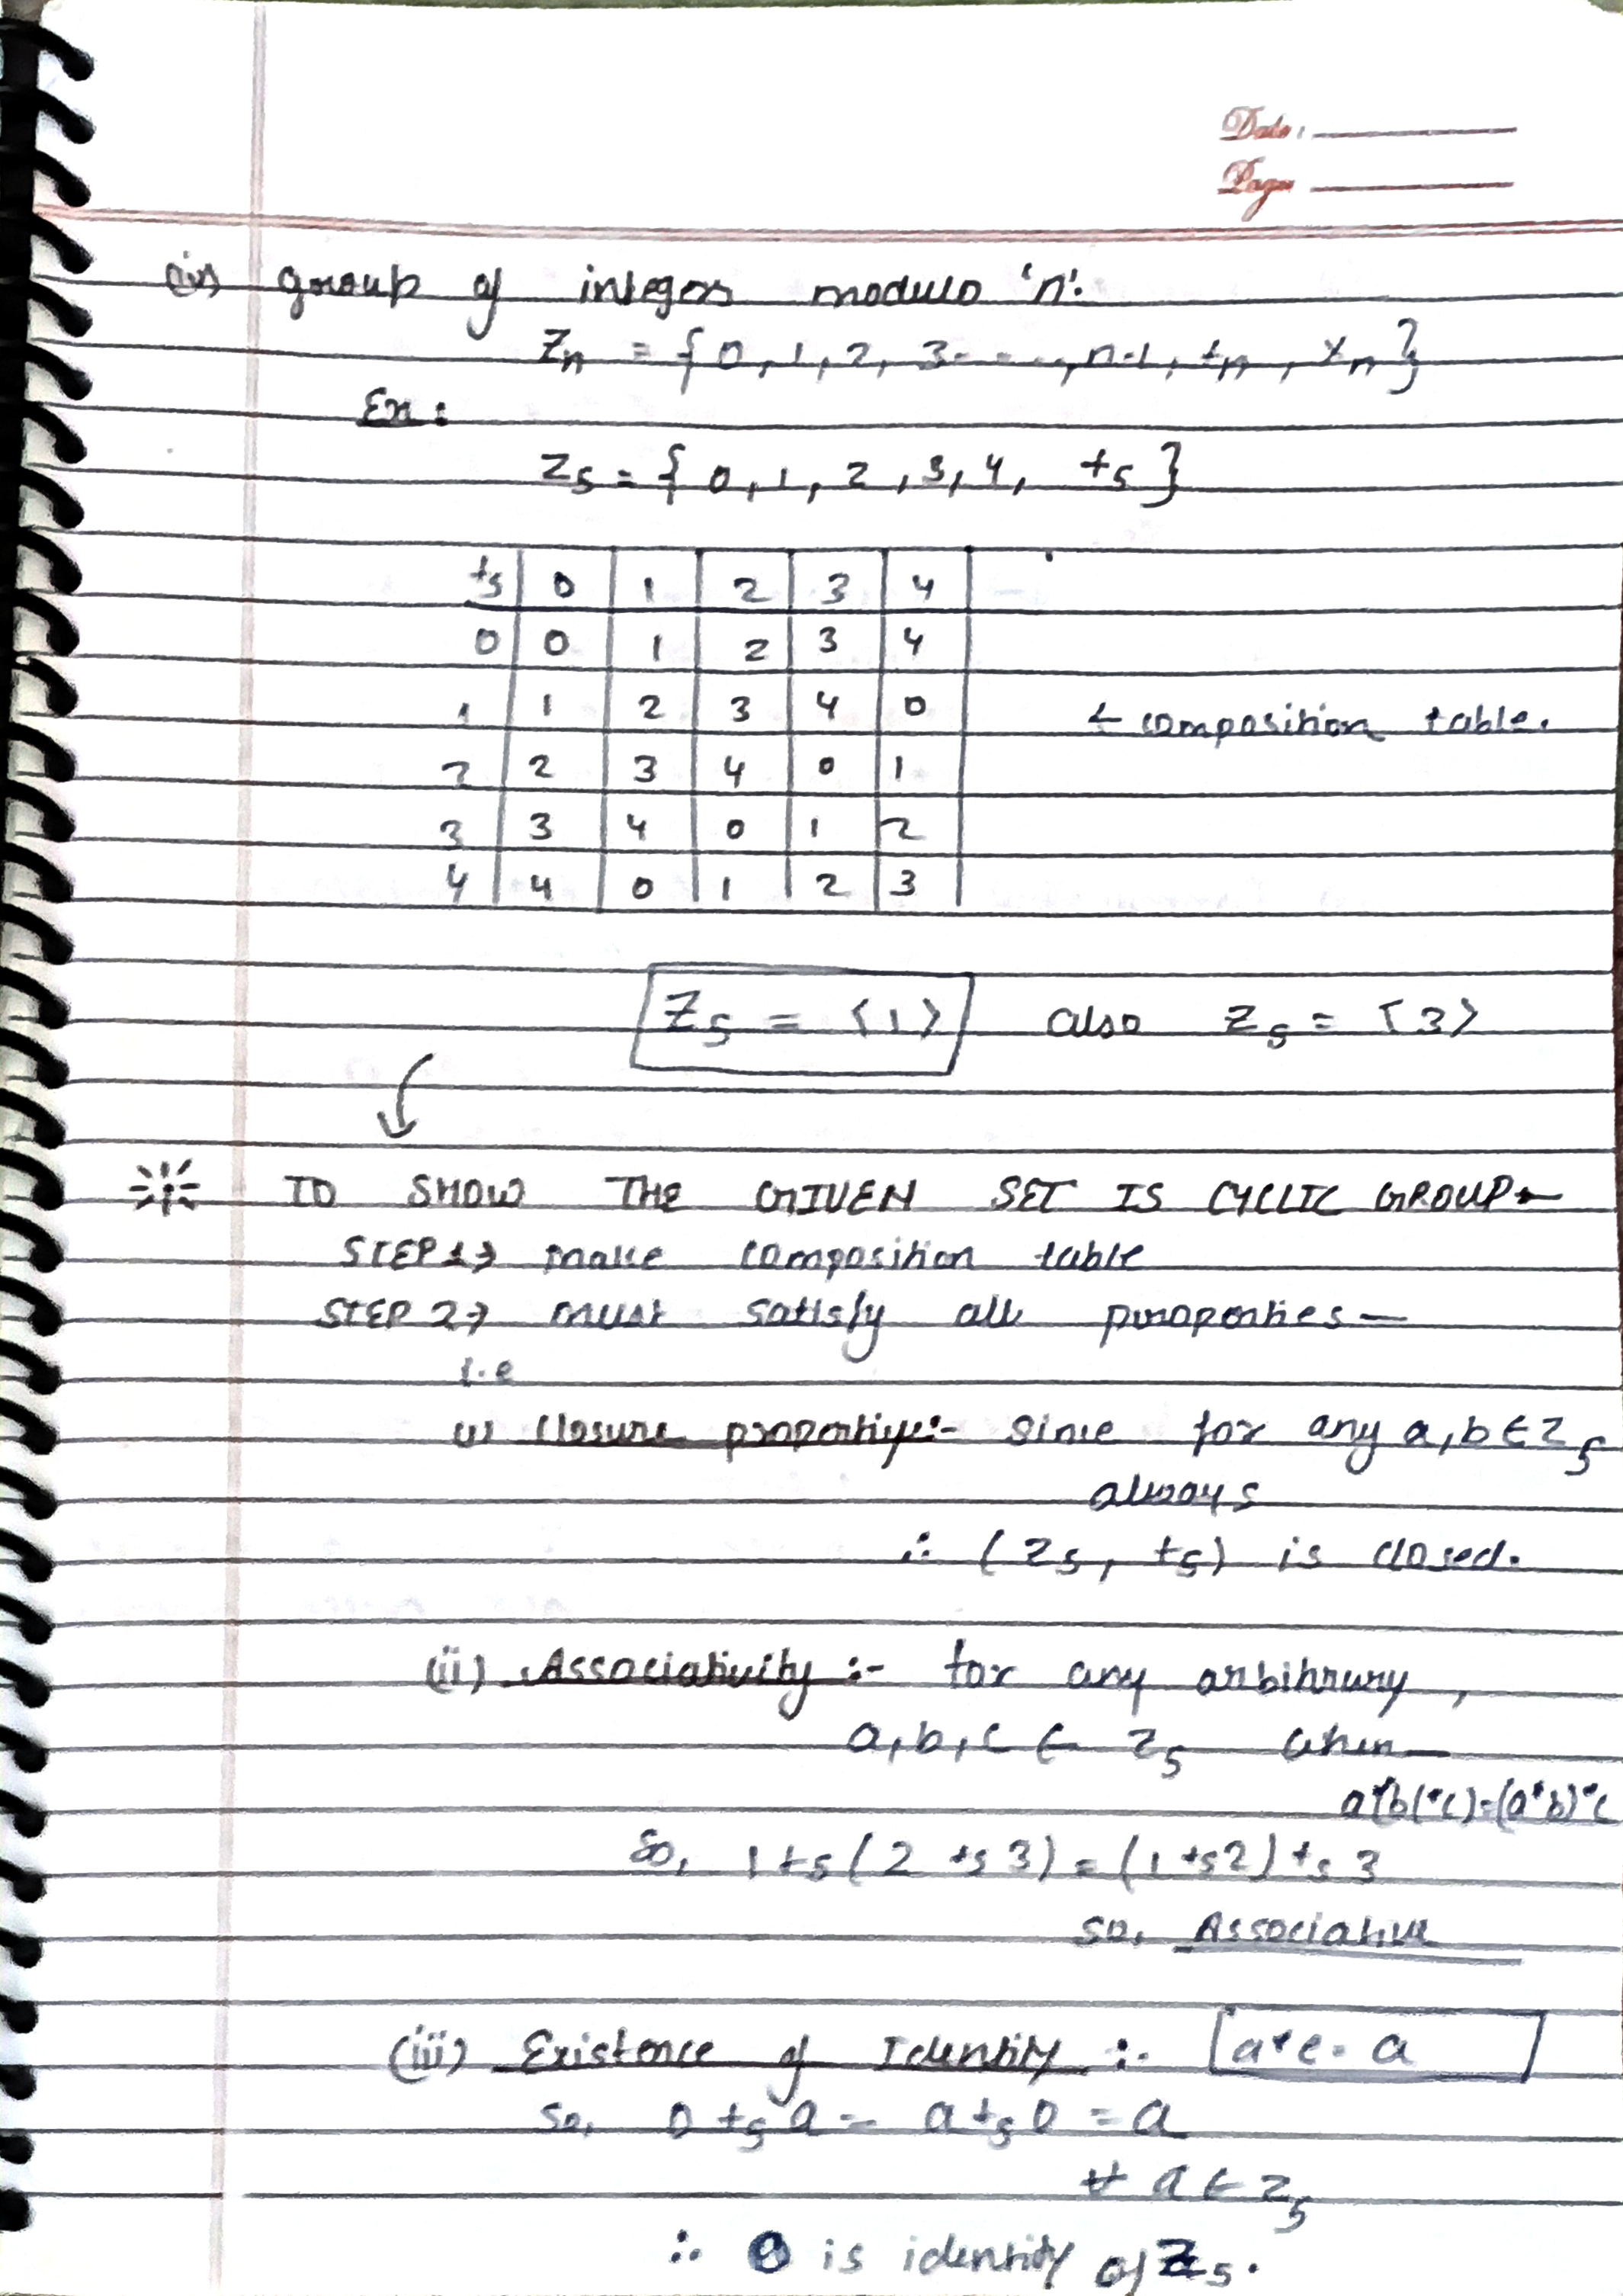 Date:
Page
(iv) group of integers modulo 'n'.
Zn = { 0, 1, 2, 3 - - - ., n-1, +n, Xn }
Ex :
Z5 = { 0, 1, 2, 3, 4, +5 }
+5 0 1 2 3 4
0 0 1 2 3 4
1 1 2 3 4 0
← composition table.
2 2 3 4 0 1
3 3 4 0 1 2
4 4 0 1 2 3
Z5 = <1> also Z5 = <3>
TO SHOW THE GIVEN SET IS CYCLIC GROUP
STEP 1→ make composition table
STEP 2→ must satisfy all properties—
i.e
(i) Closure propertiye:- Since for any a, b ∈ Z5
always
∴ (Z5, +5) is closed.
(ii) Associativity :- for any arbitrary,
a, b, c ∈ Z5 when
a*b(*c)=(a*b)*c
So, 1 +5 ( 2 +5 3) = (1 +5 2) +5 3
so, Associative
(iii) Existence of Identity :- a*e = a
so, 0 +5 a = a +5 0 = a
∀ a ∈ Z5
∴ 0 is identity of Z5.